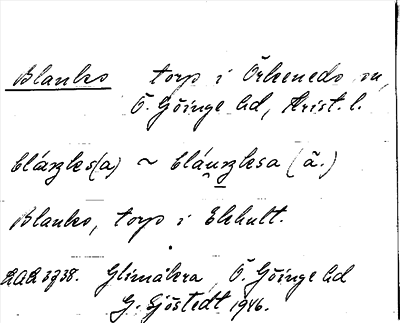 Blanko torp i Örkeneds sn,
Ö. Göinge hd, Krist. l.
blaŋks(a) ~ blaŋksa (ã.)
Blanko, torp i Ekhult.
RAÄ 3938. Glimåkra, Ö. Göinge hd
G. Sjöstedt 1946.